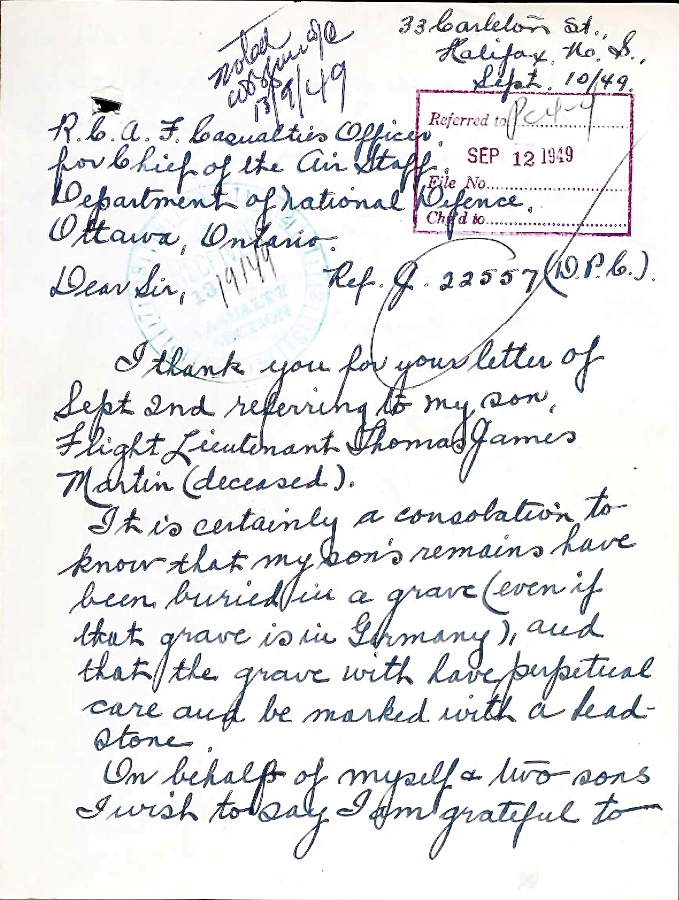 33 Carleton St.,
Halifax, No. S.,
Sept. 10/49.
noted
13/9/49
Referred to
SEP 12 1949
File No.
Ch'g'd to
R. C. A. F. Casualties Officer,
for Chief of the Air Staff,
Department of National Defence,
Ottawa, Ontario.
CASUALTY
SECTION
Dear Sir, Ref. J. 22557 (D.P.C.).
I thank you for your letter of
Sept 2nd referring to my son,
Flight Lieutenant Thomas James
Martin (deceased).
It is certainly a consolation to
know that my son's remains have
been buried in a grave (even if
that grave is in Germany), and
that the grave with have perpetual
care and be marked with a head-
stone.
On behalf of myself & two sons
I wish to say I am grateful to